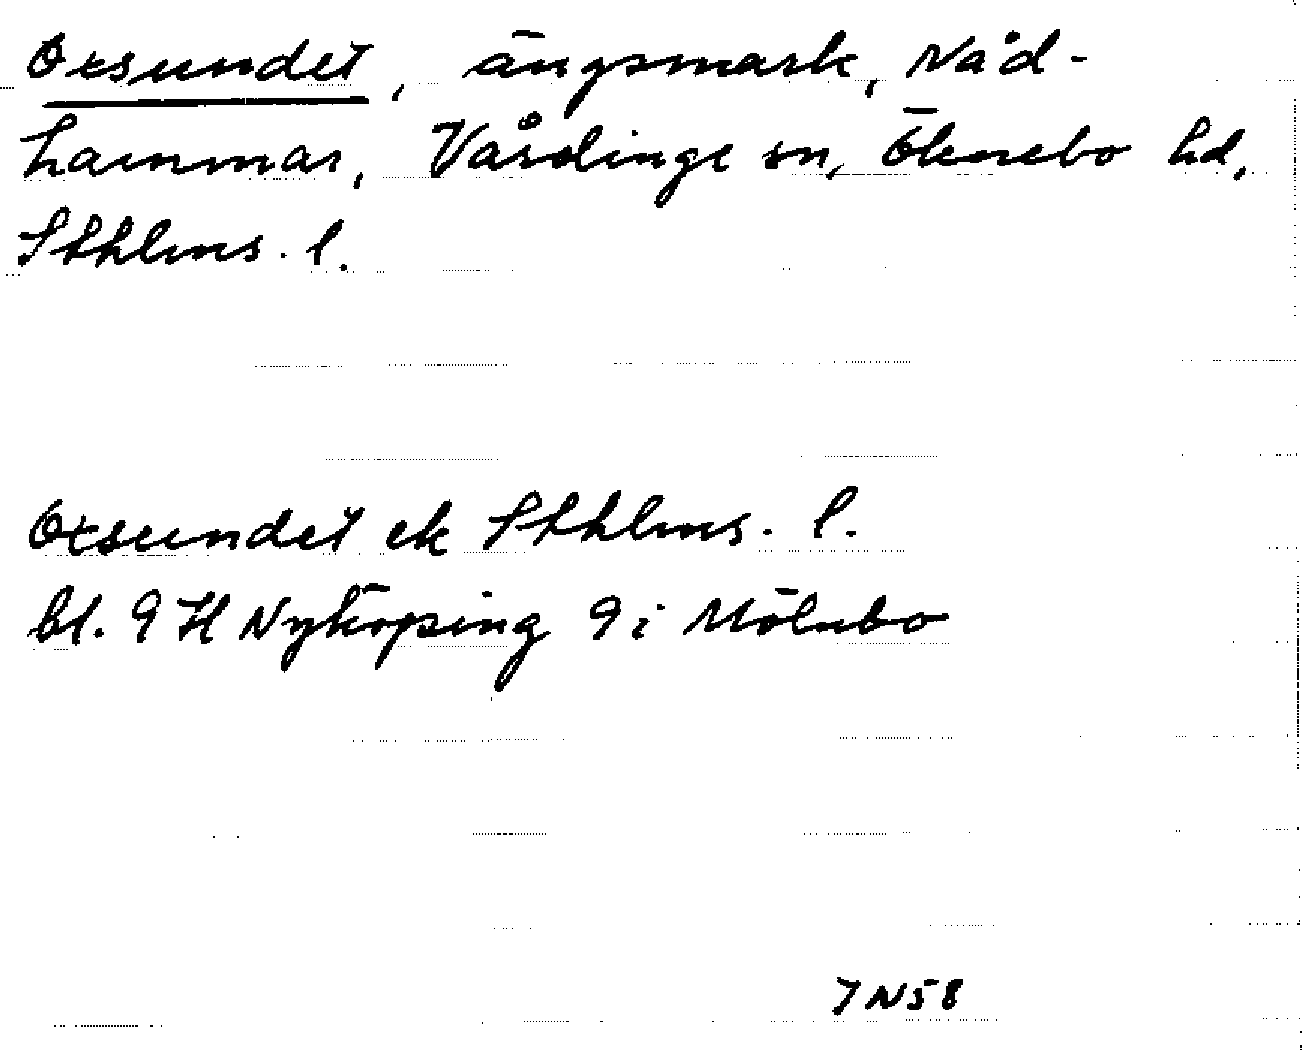 Oxsundet, ängsmark, Nåd-
hammar, Vårdinge sn, Öknebo hd,
Sthlms. l.
Oxsundet ek Sthlms. l.
bl. 9 H Nyköping 9 i Mölnbo
7N58